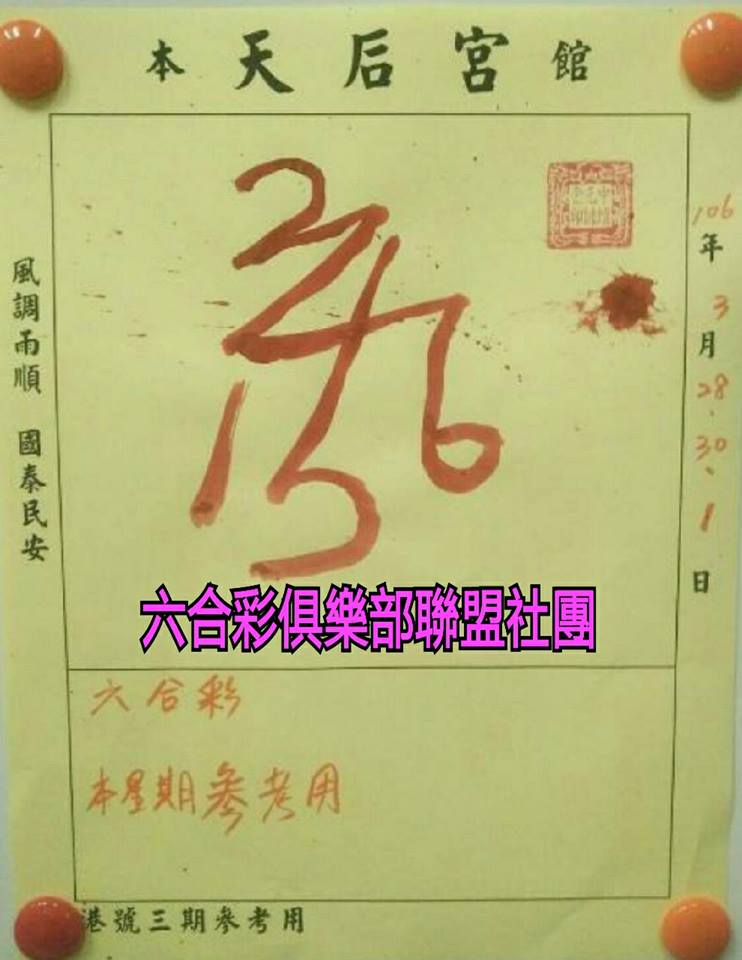 本天后宮館
106年3月28、30、1日
風調雨順 國泰民安
六合彩俱樂部聯盟社團
六合彩
本星期參考用
港號三期參考用